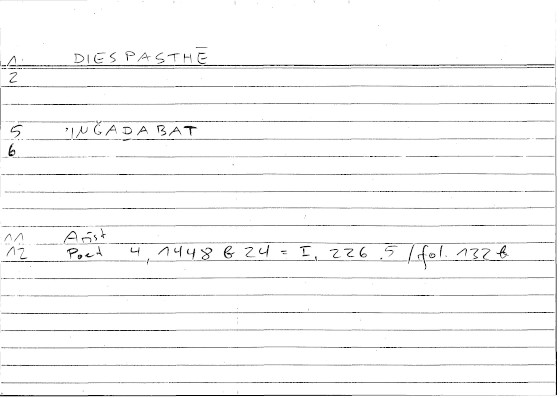 1 DIESPASTHĒ
2
5 'INĞADABAT
6
11 Arist
12 Poet 4, 1448 b 24 = I, 226.5 / fol. 132 b